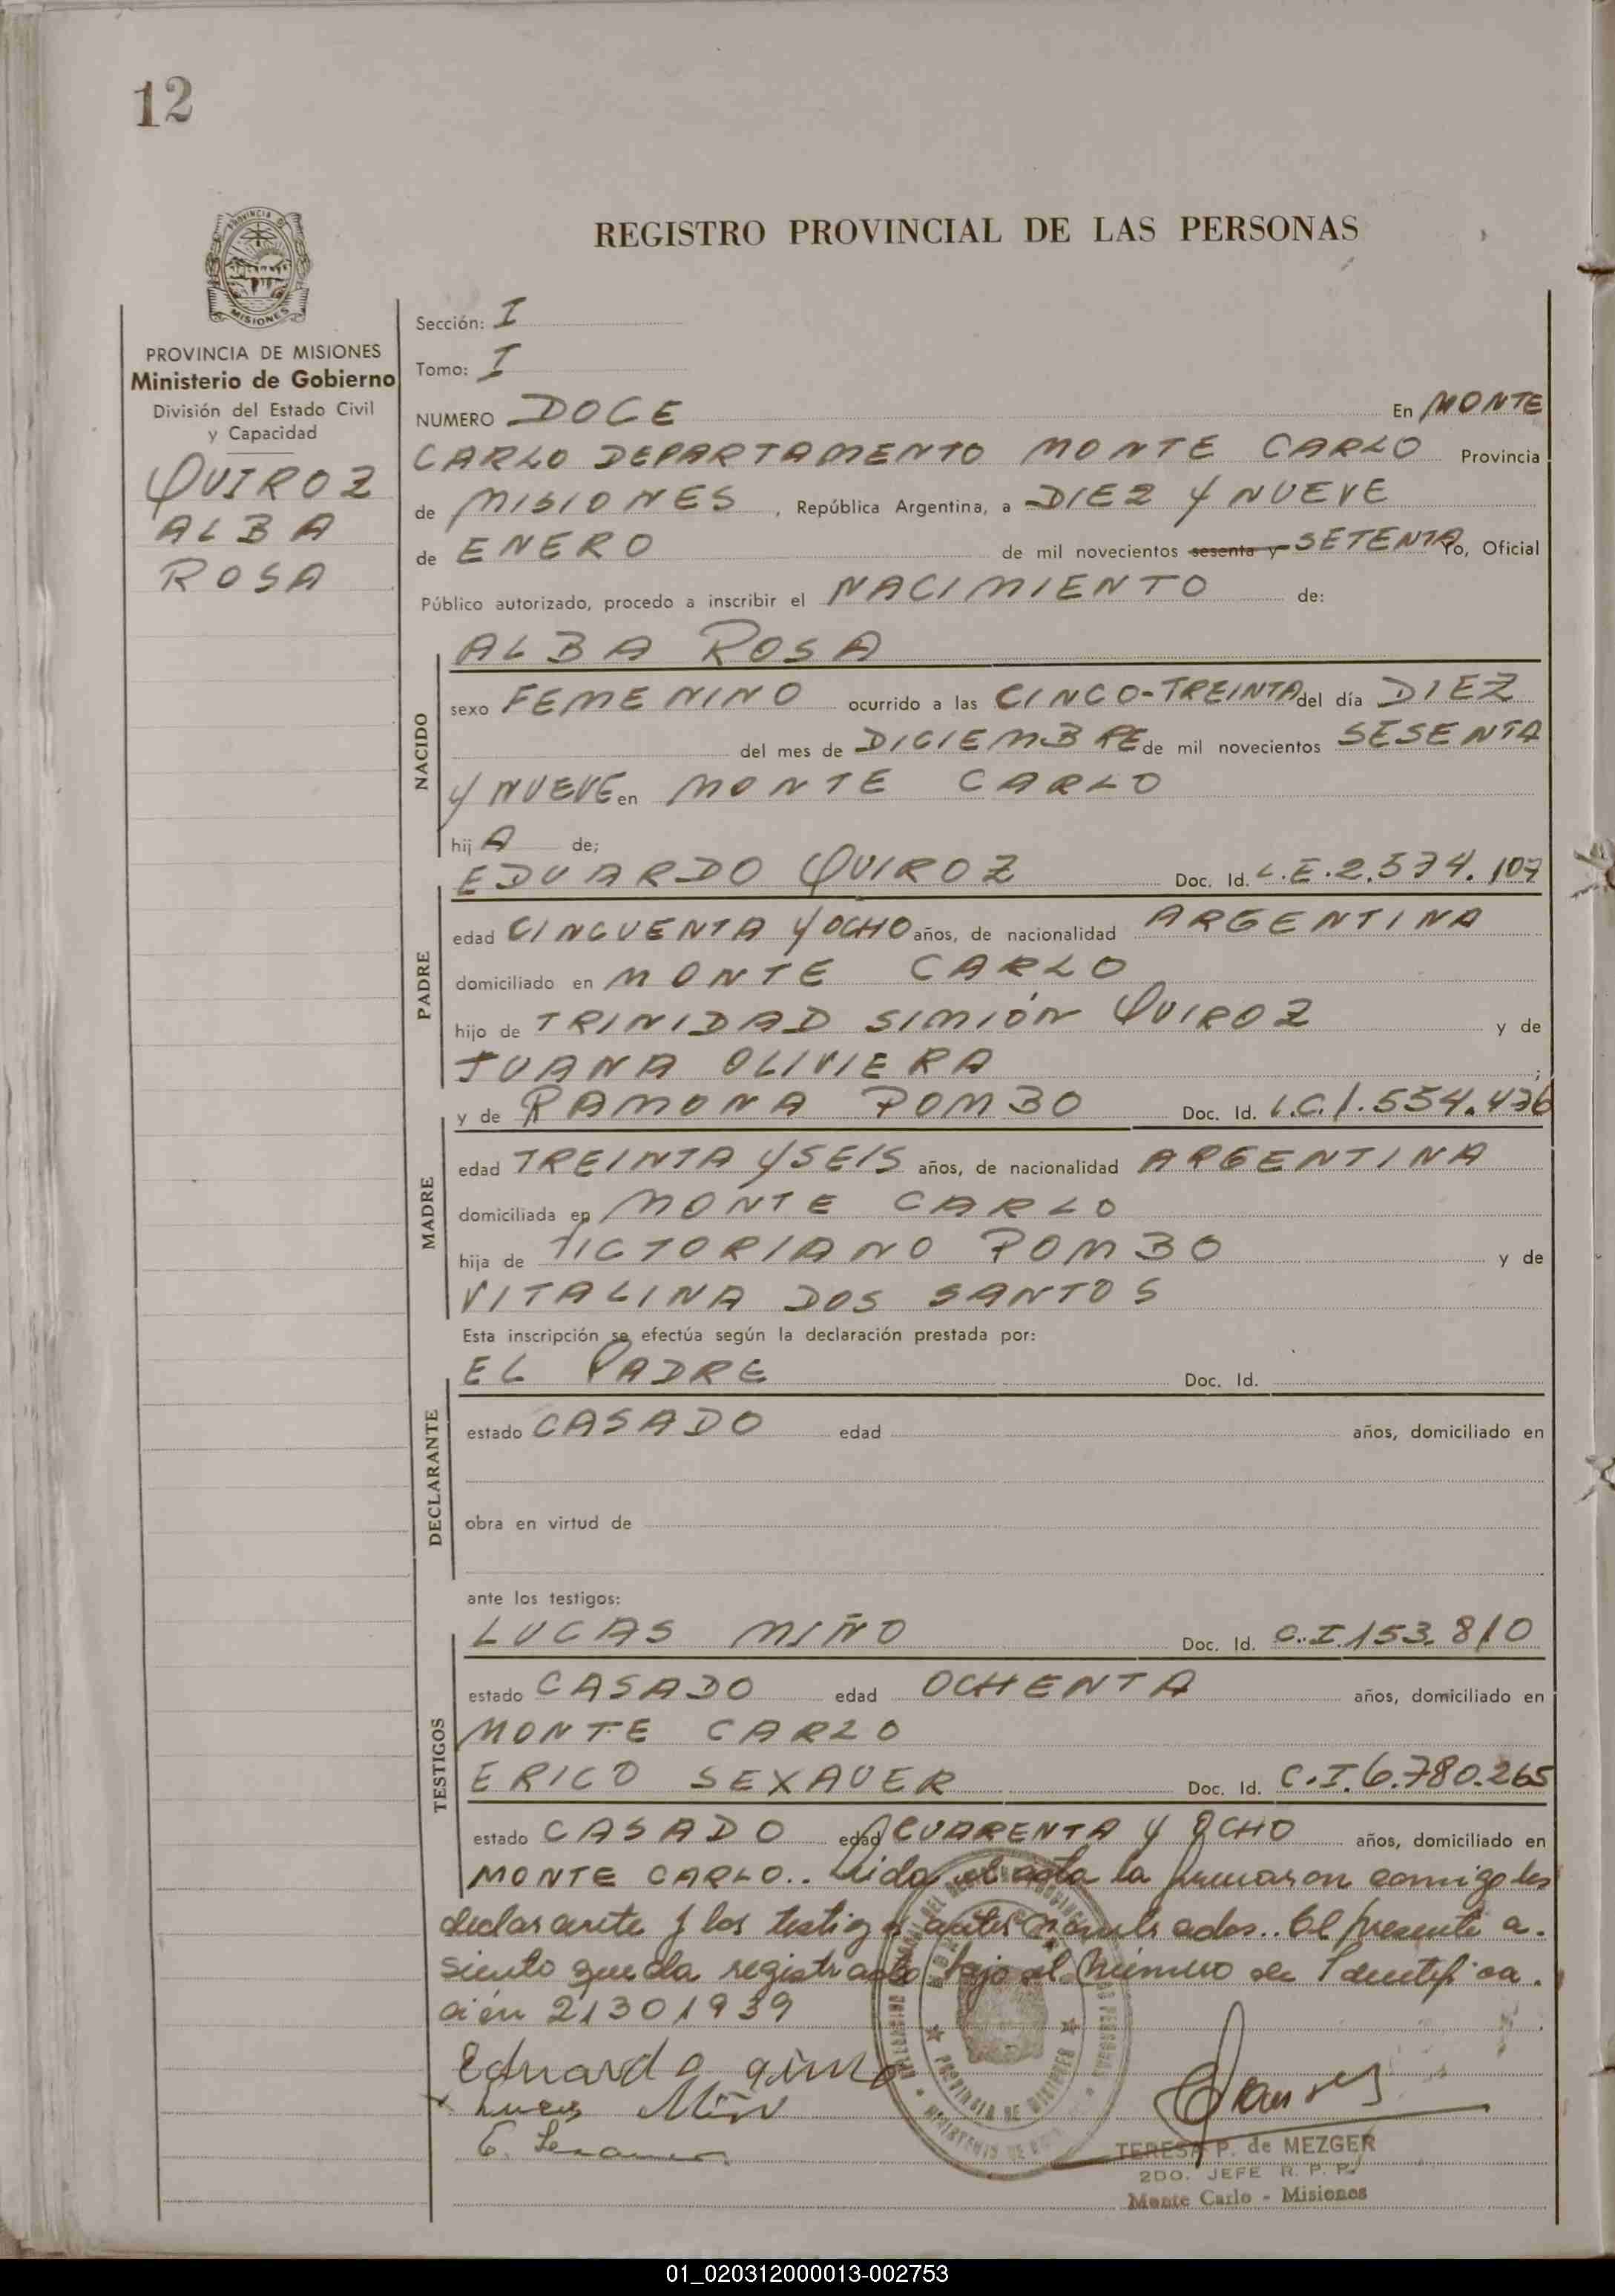 12
REGISTRO PROVINCIAL DE LAS PERSONAS
MISIONES
PROVINCIA DE MISIONES
Ministerio de Gobierno
División del Estado Civil
y Capacidad
QUIROZ
ALBA
ROSA
Sección: I
Tomo: I
NUMERO DOCE En MONTE
CARLO DEPARTAMENTO MONTE CARLO Provincia
de MISIONES, República Argentina, a DIEZ Y NUEVE
de ENERO de mil novecientos sesenta y SETENTA Yo, Oficial
Público autorizado, procedo a inscribir el NACIMIENTO de:
ALBA ROSA
NACIDO
sexo FEMENINO ocurrido a las CINCO-TREINTA del día DIEZ
del mes de DICIEMBRE de mil novecientos SESENTA
Y NUEVE en MONTE CARLO
hij A de;
EDUARDO QUIROZ Doc. Id. L.E.2.574.107
PADRE
edad CINCUENTA Y OCHO años, de nacionalidad ARGENTINA
domiciliado en MONTE CARLO
hijo de TRINIDAD SIMIÓN QUIROZ y de
JUANA OLIVIERA;
y de RAMONA POMBO Doc. Id. L.C.1.554.436
MADRE
edad TREINTA Y SEIS años, de nacionalidad ARGENTINA
domiciliada en MONTE CARLO
hija de VICTORIANO POMBO y de
VITALINA DOS SANTOS
Esta inscripción se efectúa según la declaración prestada por:
EL PADRE Doc. Id.
DECLARANTE
estado CASADO edad años, domiciliado en
obra en virtud de
ante los testigos:
LUCAS MIÑO Doc. Id. C.I.153.810
TESTIGOS
estado CASADO edad OCHENTA años, domiciliado en
MONTE CARLO
ERICO SEXAUER Doc. Id. C.I.6.780.265
estado CASADO edad CUARENTA Y OCHO años, domiciliado en
MONTE CARLO.. Leida el acta la firmaron comigo los
declarante y los testigos antes nombrados.. El presente a-
siento queda registrado bajo el Número de Identifica-
ción 21301939
PROVINCIA DE MISIONES
Eduardo
Lucas Miño
E. Sexauer
TERESA P. de MEZGER
2DO. JEFE R. P. P.
Monte Carlo - Misiones
01_020312000013-002753